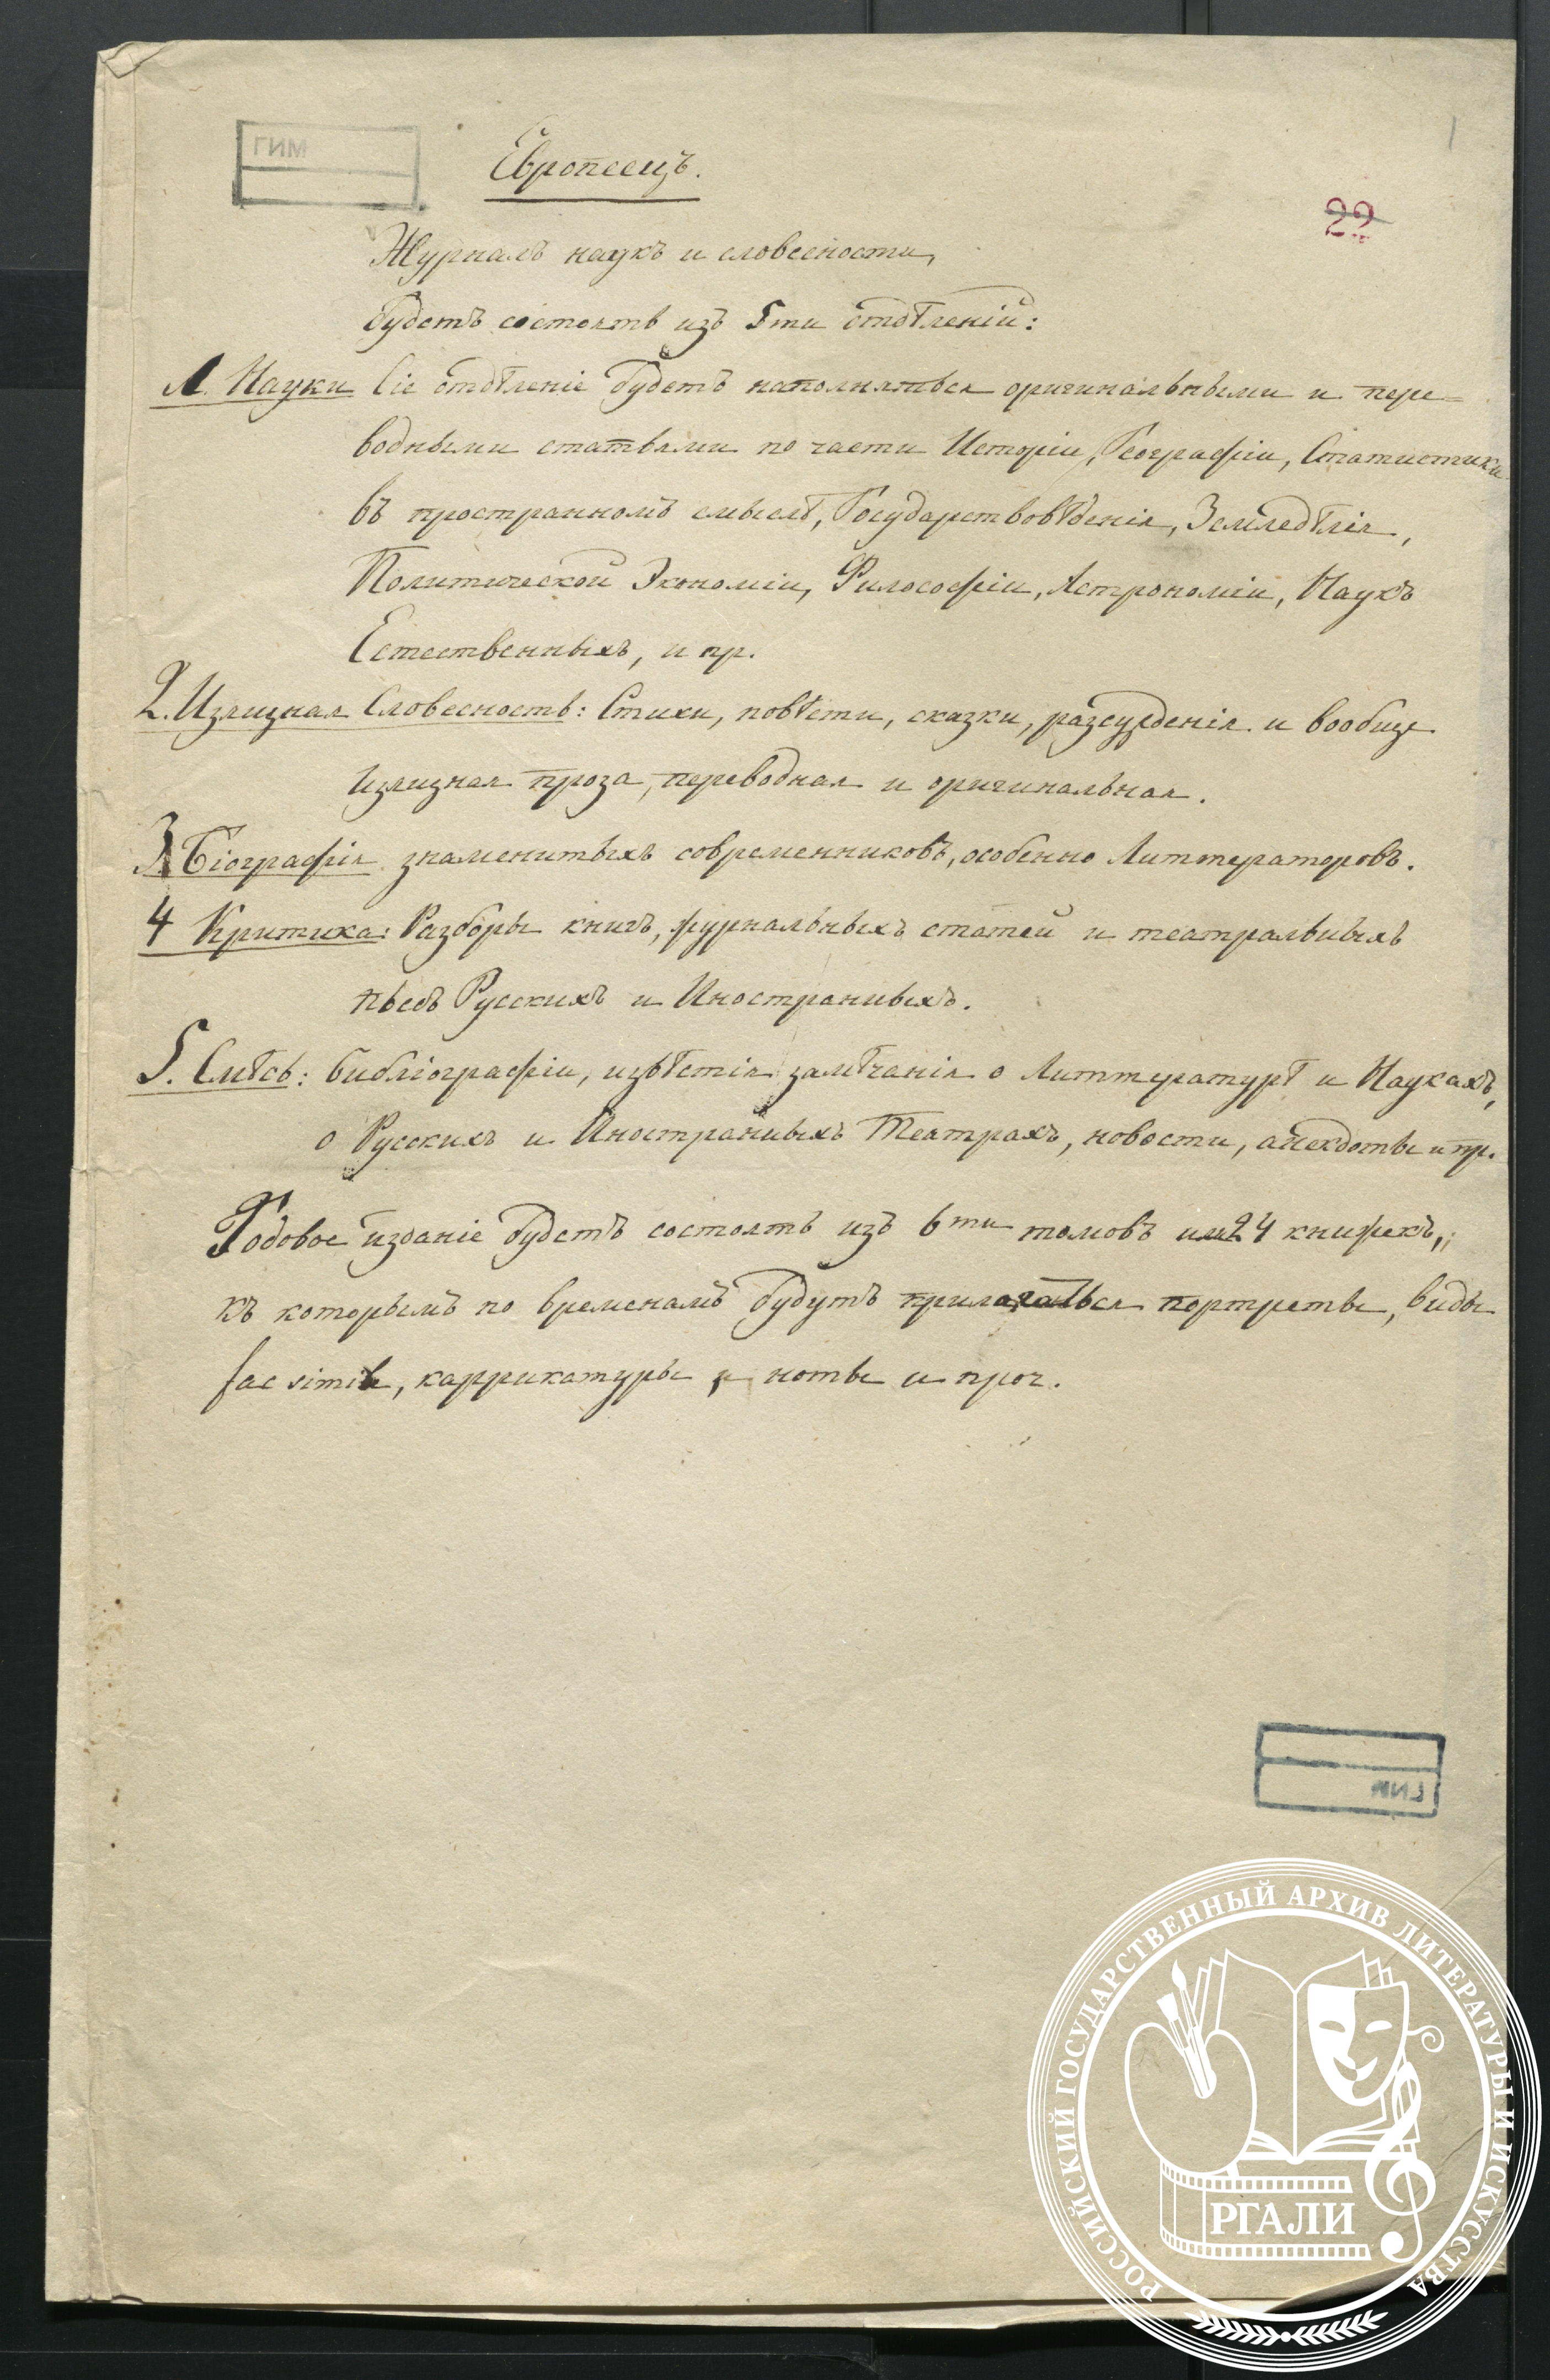 ГИМ
Европеецъ.
22
Журналъ наукъ и словесности,
будетъ состоять изъ 5ти отдѣленій:
1. Науки Сіе отдѣленіе будетъ наполняться оригинальными и пере=
водными статьями по части Исторіи, Географіи, Статистики
въ пространномъ смыслѣ, Государствовѣденія, Земледѣлія,
Политической Экономіи, Философіи, Астрономіи, Наукъ
Естественныхъ, и пр.
2. Изящная Словесность: Стихи, повѣсти, сказки, разсужденія и вообще
изящная проза, переводная и оригинальная.
3 Біографія знаменитыхъ современниковъ, особенно Литтераторовъ.
4 Критика: Разборы книгъ, журнальныхъ статей и театральныхъ
пьесъ Русскихъ и Иностранныхъ.
5. Смѣсь: библіографіи, извѣстія замѣчанія о Литтературѣ и Наукахъ,
о Русскихъ и Иностранныхъ Театрахъ, новости, анекдоты и пр.
Годовое изданіе будетъ состоять изъ 6ти томовъ или 24 книжекъ,
къ которымъ по временамъ будутъ прилагаться портреты, виды
fac simile, каррикатуры, и ноты и проч.
ГИМ
РОССИЙСКИЙ ГОСУДАРСТВЕННЫЙ АРХИВ ЛИТЕРАТУРЫ И ИСКУССТВА
РГАЛИ